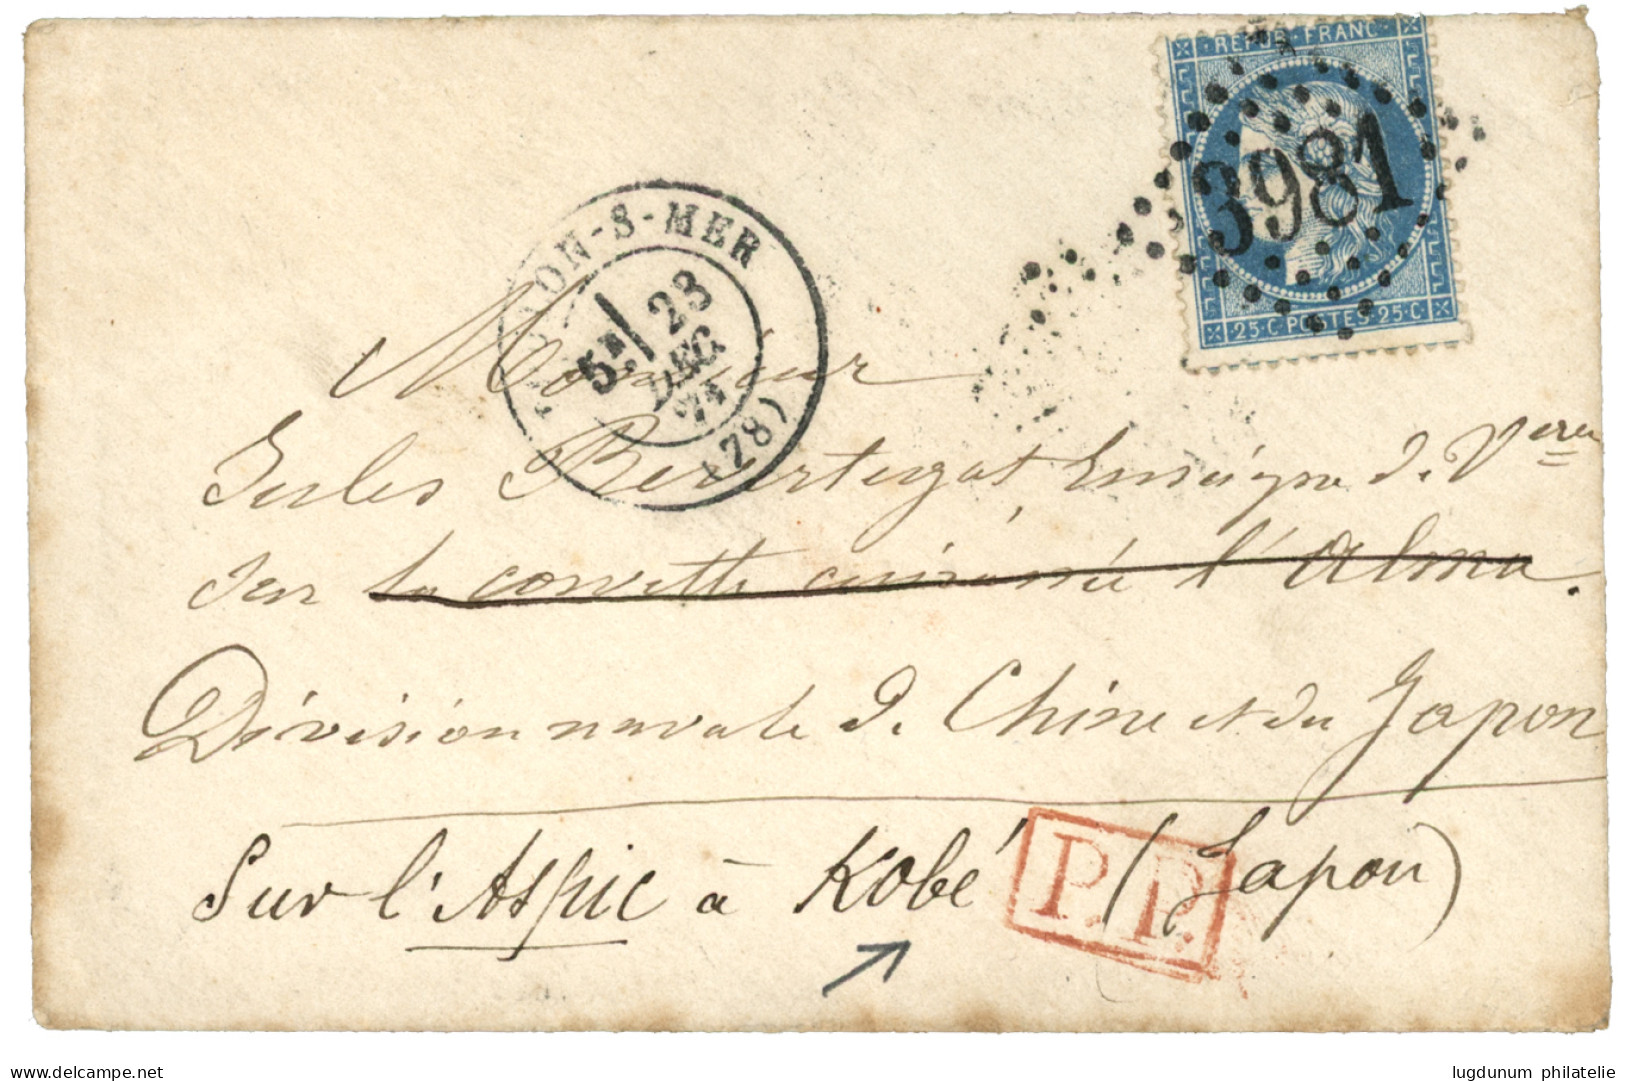 REPUB·FRANC
3981
25·C POSTES 25·C
TOULON-S-MER
5E
23
DEC
(78)
Monsieur
Jules Enseigne de Veau
sur la corvette cuirassée l'Alma.
Division navale de Chine et du Japon
Sur l'Aspic à Kobé (Japon)
P.P.
lugdunum philatelie